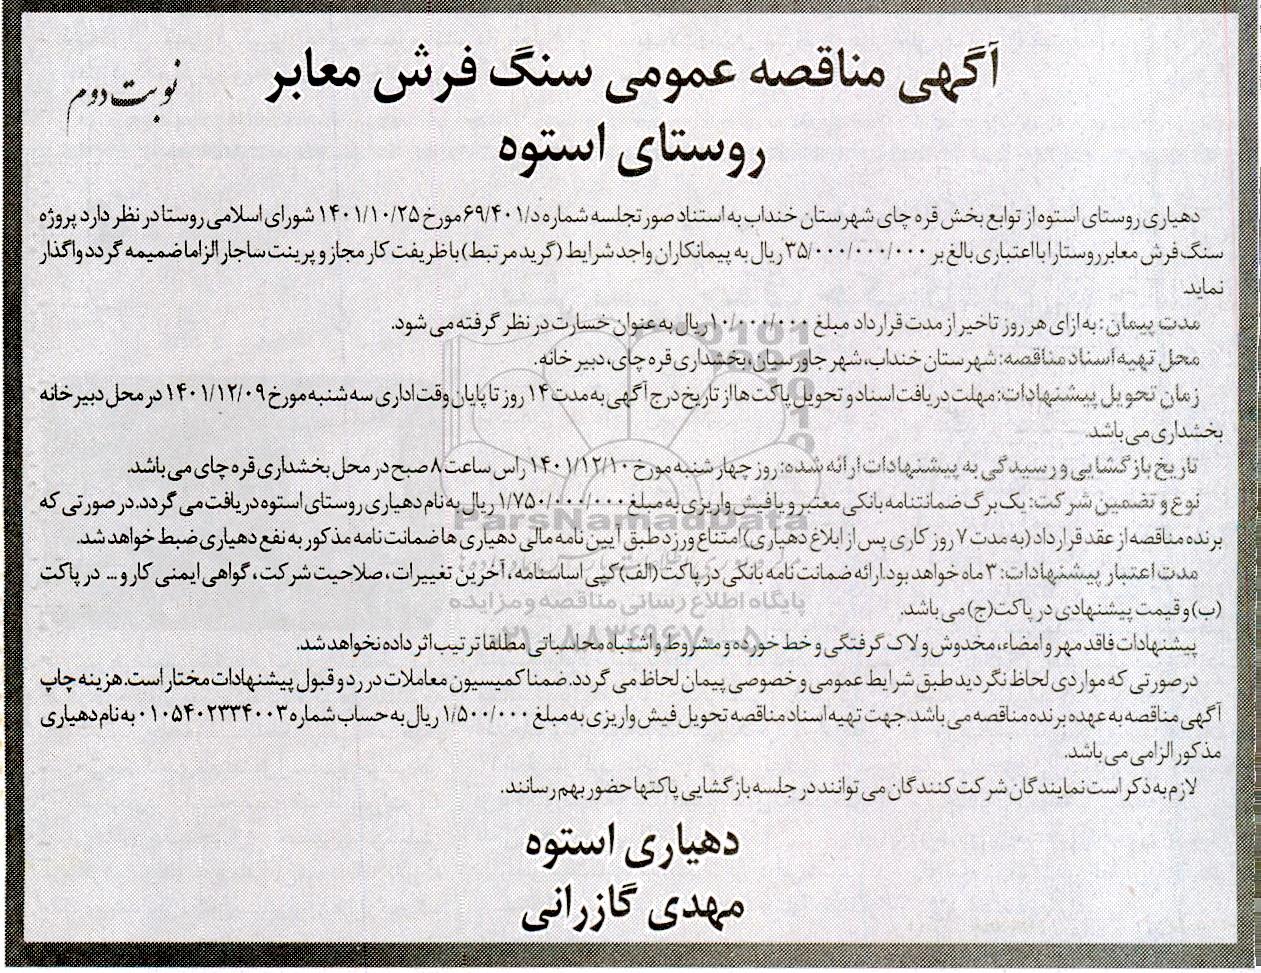 آگهی مناقصه عمومی سنگ فرش معابر
نوبت دوم
روستای استوه
دهیاری روستای استوه از توابع بخش قره چای شهرستان خنداب به استناد صورتجلسه شماره د/۶۹/۴۰۱ مورخ ۱۴۰۱/۱۰/۲۵ شورای اسلامی روستا در نظر دارد پروژه
سنگ فرش معابر روستا را با اعتباری بالغ بر ۳۵/۰۰۰/۰۰۰/۰۰۰ ریال به پیمانکاران واجد شرایط (گرید مرتبط) با ظریفت کار مجاز و پرینت ساجار الزاما ضمیمه گردد واگذار
نماید.
مدت پیمان: به ازای هر روز تاخیر از مدت قرارداد مبلغ ۱۰/۰۰۰/۰۰۰ ریال به عنوان خسارت در نظر گرفته می شود.
محل تهیه اسناد مناقصه: شهرستان خنداب، شهر جاورسیان، بخشداری قره چای، دبیر خانه.
زمان تحویل پیشنهادات: مهلت دریافت اسناد و تحویل پاکت ها از تاریخ درج آگهی به مدت ۱۴ روز تا پایان وقت اداری سه شنبه مورخ ۱۴۰۱/۱۲/۰۹ در محل دبیر خانه
بخشداری می باشد.
تاریخ بازگشایی و رسیدگی به پیشنهادات ارائه شده: روز چهار شنبه مورخ ۱۴۰۱/۱۲/۱۰ راس ساعت ۸ صبح در محل بخشداری قره چای می باشد.
نوع و تضمین شرکت: یک برگ ضمانتنامه بانکی معتبر و یا فیش واریزی به مبلغ ۱/۷۵۰/۰۰۰/۰۰۰ ریال به نام دهیاری روستای استوه دریافت می گردد. در صورتی که
برنده مناقصه از عقد قرارداد (به مدت ۷ روز کاری پس از ابلاغ دهیاری) امتناع ورزد طبق آیین نامه مالی دهیاری ها ضمانت نامه مذکور به نفع دهیاری ضبط خواهد شد.
مدت اعتبار پیشنهادات: ۳ ماه خواهد بود. ارائه ضمانت نامه بانکی در پاکت (الف) کپی اساسنامه، آخرین تغییرات، صلاحیت شرکت، گواهی ایمنی کار و... در پاکت
(ب) و قیمت پیشنهادی در پاکت (ج) می باشد.
پیشنهادات فاقد مهر و امضاء، مخدوش و لاک گرفتگی و خط خورده و مشروط و اشتباه محاسباتی مطلقا ترتیب اثر داده نخواهد شد.
در صورتی که مواردی لحاظ نگردید طبق شرایط عمومی و خصوصی پیمان لحاظ می گردد. ضمنا کمیسیون معاملات در رد و قبول پیشنهادات مختار است. هزینه چاپ
آگهی مناقصه به عهده برنده مناقصه می باشد. جهت تهیه اسناد مناقصه تحویل فیش واریزی به مبلغ ۱/۵۰۰/۰۰۰ ریال به حساب شماره ۰۱۰۵۴۰۲۳۳۴۰۰۳ به نام دهیاری
مذکور الزامی می باشد.
لازم به ذکر است نمایندگان شرکت کنندگان می توانند در جلسه بازگشایی پاکتها حضور بهم رسانند.
دهیاری استوه
مهدی گازرانی
ParsNamadData
پایگاه اطلاع رسانی مناقصه و مزایده
۰۲۱-۸۸۳۴۹۶۷۰-۵